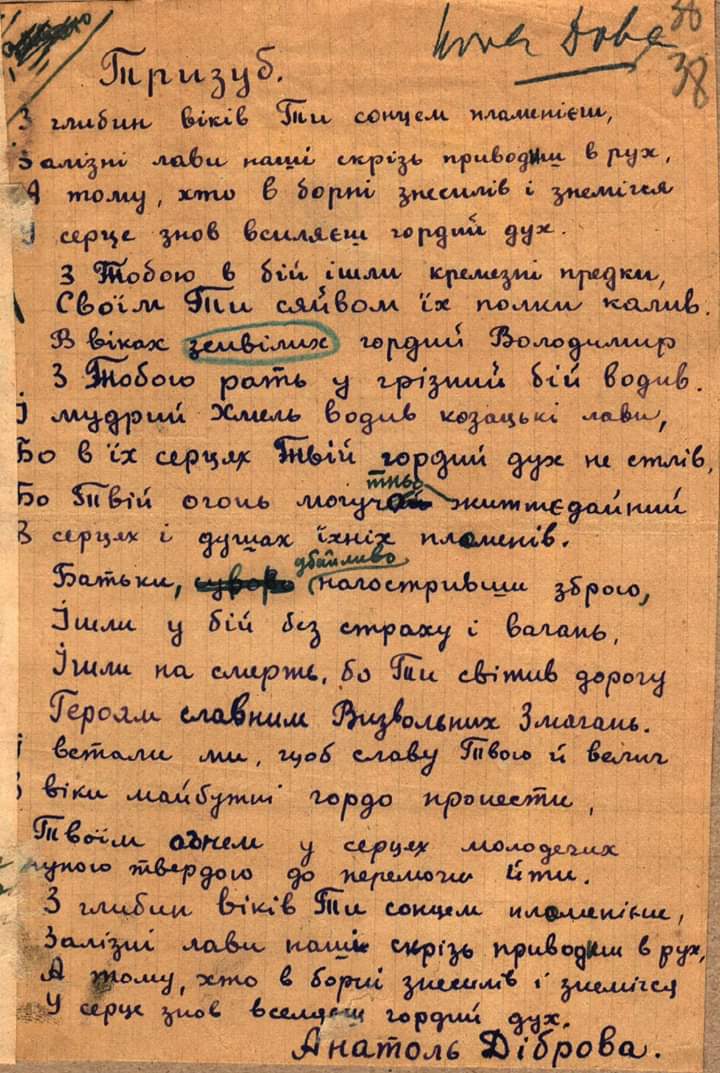 Нова Доба 38
38
Тризуб.
З глибин віків Ти сонцем пламенієш,
Залізні лави наші скрізь приводиш в рух,
А тому, хто в борні знесилів і знемігся
У серце знов всиляєш гордий дух.
З Тобою в бій ішли кремезні предки,
Своїм Ти сяйвом їх полки калив.
В віках зцвілих гордий Володимир
З Тобою рать у грізний бій водив.
І мудрий Хмель водив козацькі лави,
Бо в їх серцях Твій гордий дух не стлів,
тньо
Бо Твій огонь могучий життєдайний
В серцях і душах їхніх пломенів.
дбайливо
Батьки, суворо нагостривши зброю,
Ішли у бій без страху і вагань,
Ішли на смерть, бо Ти світив дорогу
Героям славним Визвольних Змагань.
І встали ми, щоб славу Твою й велич
В віки майбутні гордо пронести,
Твоїм огнем у серцях молодечих
ступою твердою до перемоги йти.
З глибин віків Ти сонцем пломенієш,
Залізні лави наші скрізь приводиш в рух,
А тому, хто в борні знесилів і знемігся
У серце знов вселяєш гордий дух.
Анатоль Діброва.